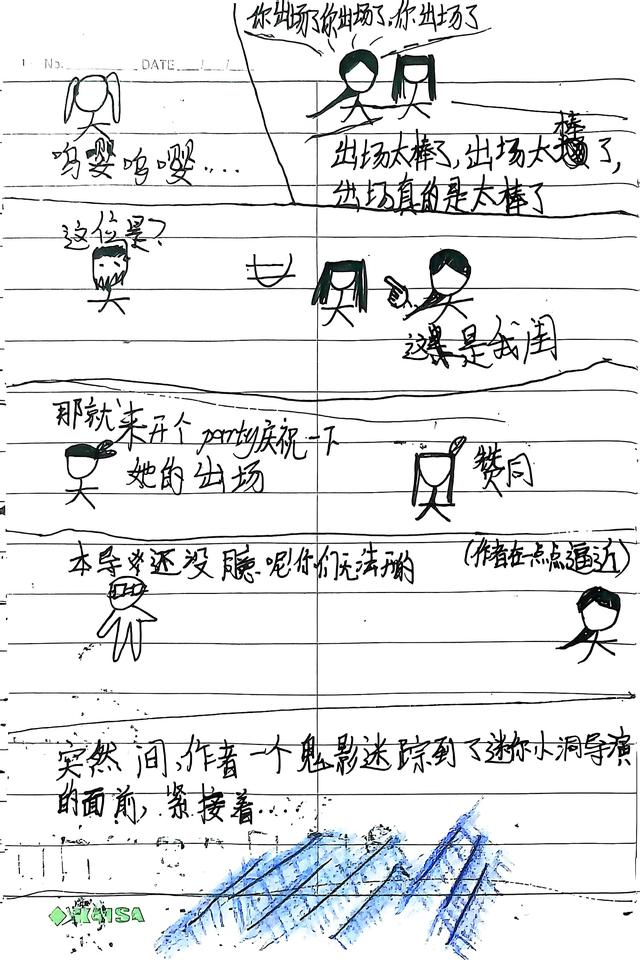 你出场了你出场了,你出场了
No. DATE / /
呜嘤呜嘤....
出场太棒了,出场太棒了,
出场真的是太棒了
这位是?
这是我闺
那就来开个party庆祝一下
她的出场
赞同
本导还没 呢!你们无法 的
(作者在一点点逼近)
突然间,作者一个鬼影迷踪到了迷你小洞导演
的面前,紧接着....